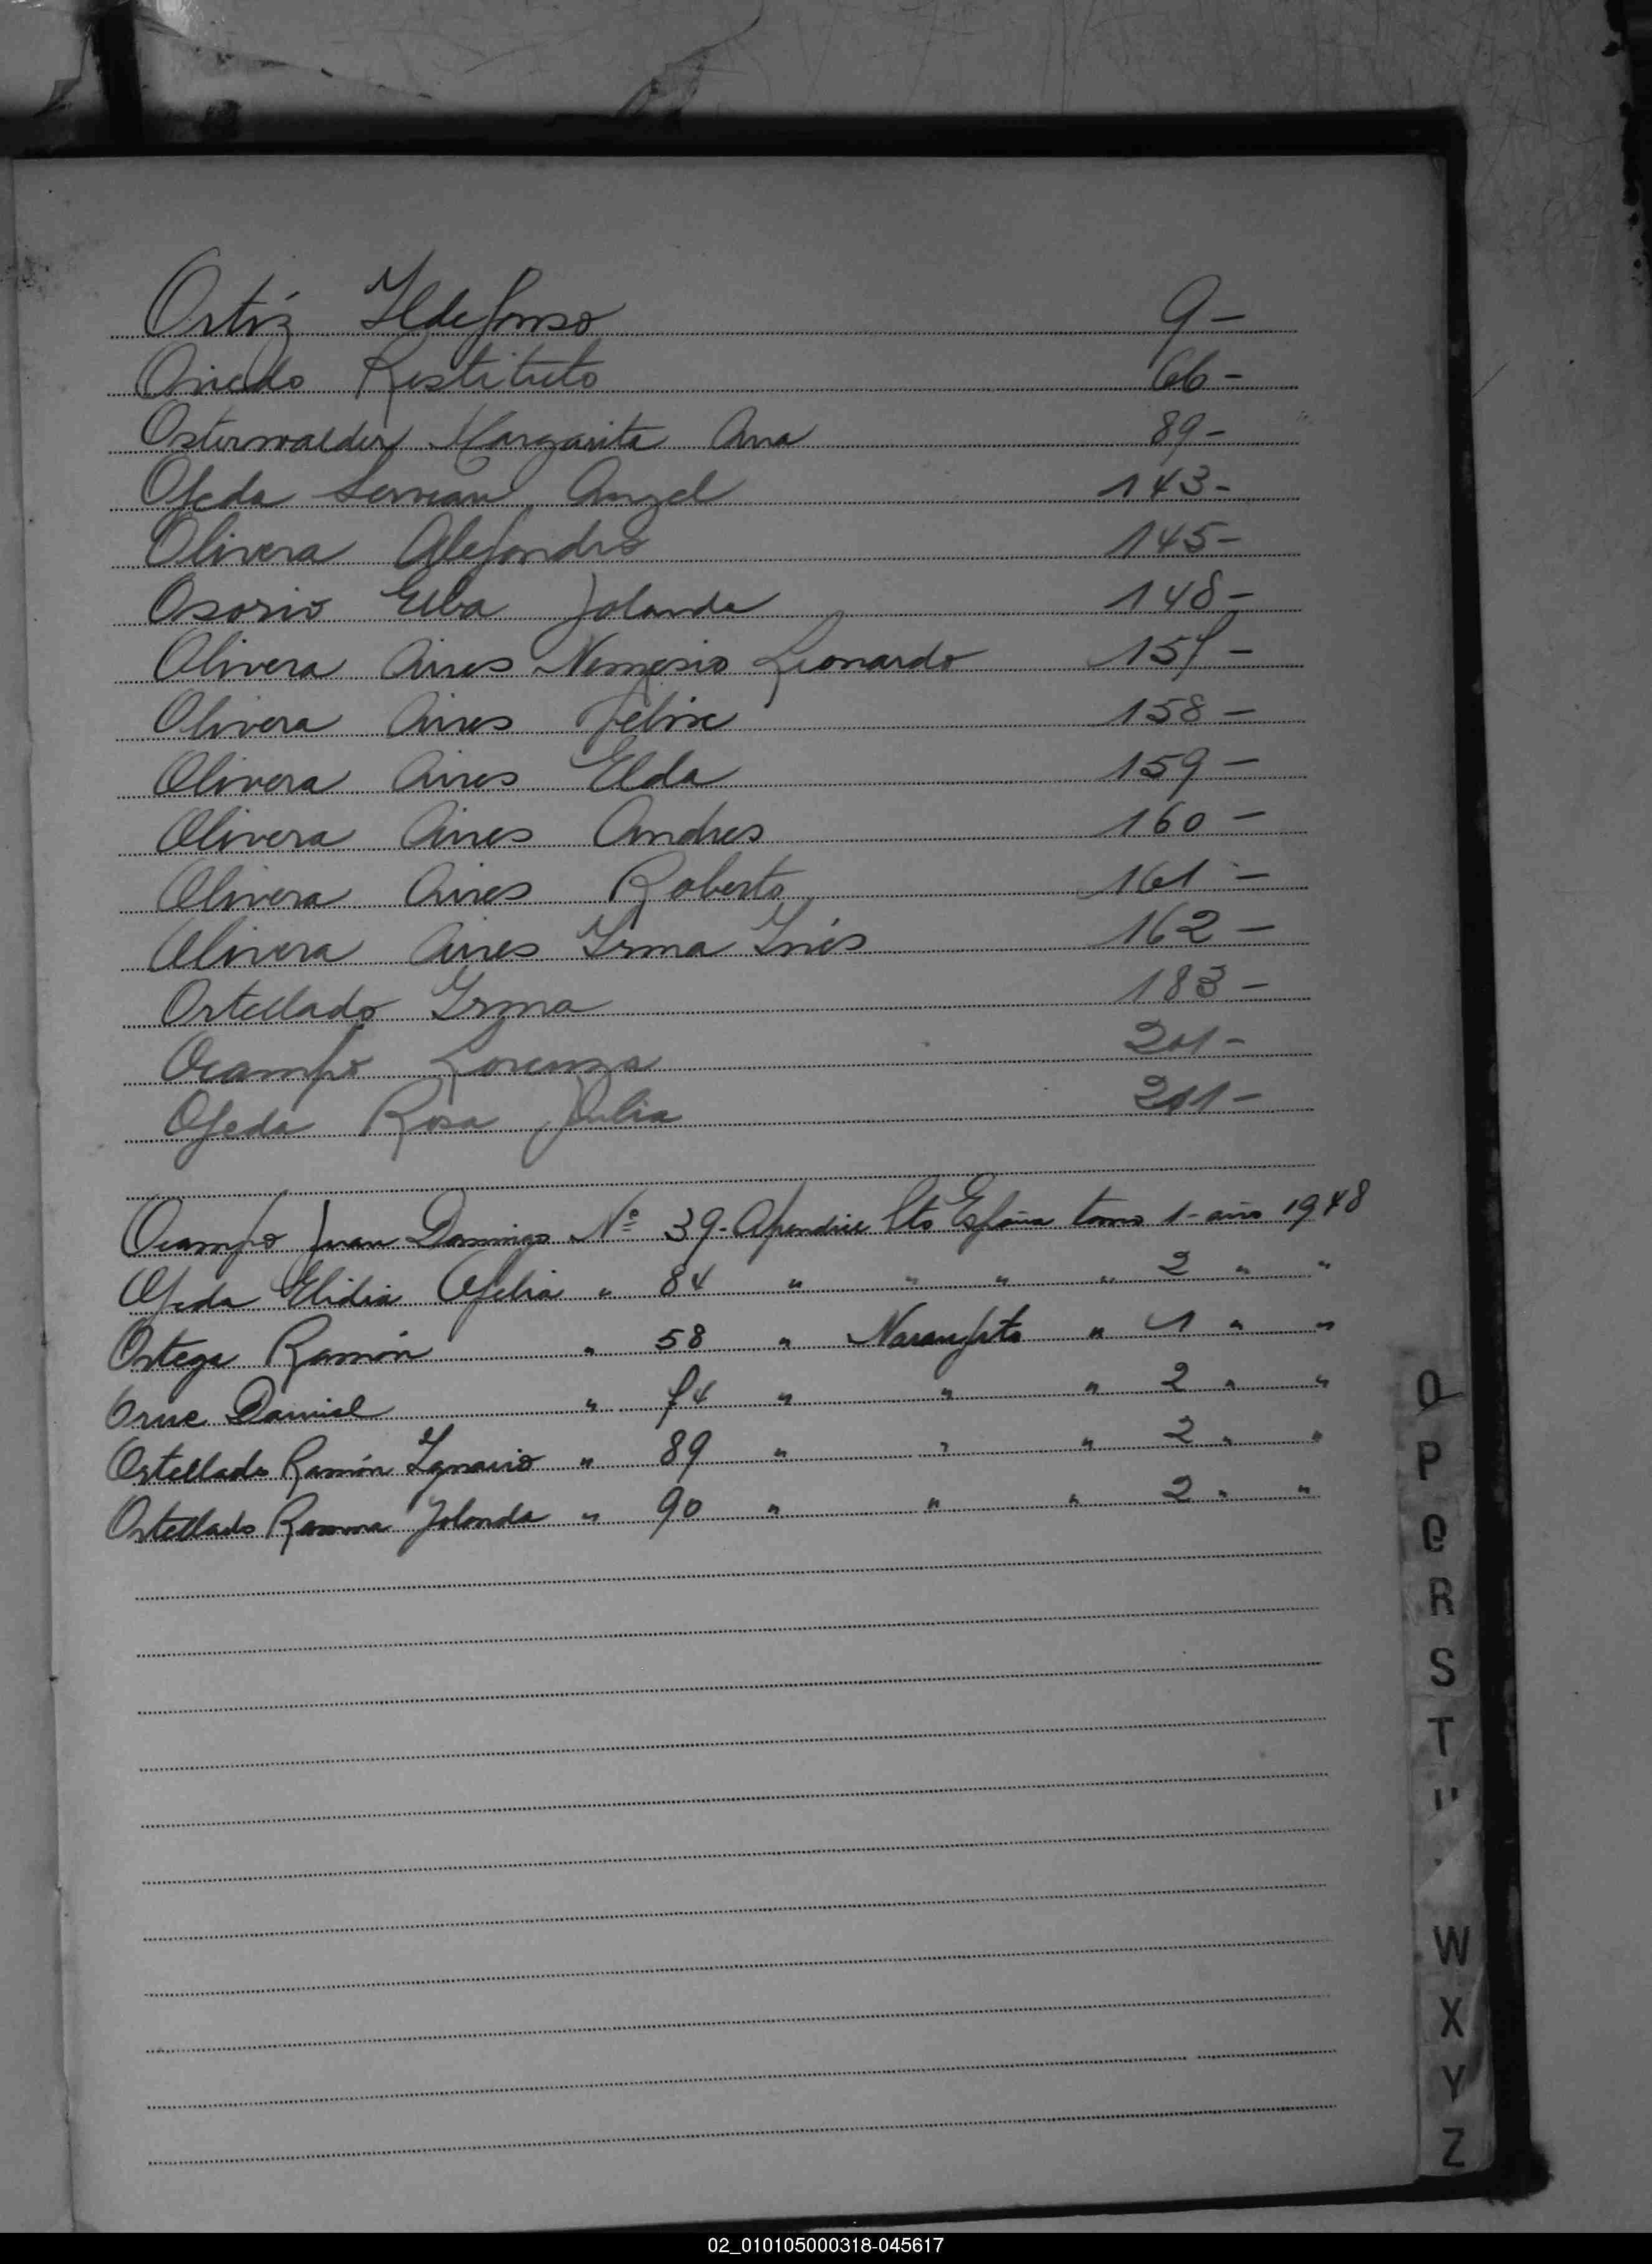 Ortíz Ildefonso 9-
Oviedo Restituto 66-
Osterwalder Margarita Ana 89-
Ojeda Servian Angel 143-
Olivera Alejandro 145-
Osorio Elba Jolanda 148-
Olivera Aires Nemesio Leonardo 157-
Olivera Aires Felix 158-
Olivera Aires Elda 159-
Olivera Aires Andres 160-
Olivera Aires Roberto 161-
Olivera Aires Irma Inés 162-
Ortellado Irma 183-
Ocampo Lorenza 201-
Ojeda Rosa Julia 201-
Ocampo Juan Domingo Nº 39-Apendice Pto España tomo 1-año 1948
Ojeda Elidia Ofelia " 84 " " " " 2 " "
Ortega Ramón " 58 " Naranjito " 1 " "
Orue Daniel " 74 " " " 2 " "
Ortellado Ramón Ignacio " 89 " " " 2 " "
Ortellado Ramona Jolanda " 90 " " " 2 " "
O
P
Q
R
S
T
W
X
Y
Z
02_010105000318-045617